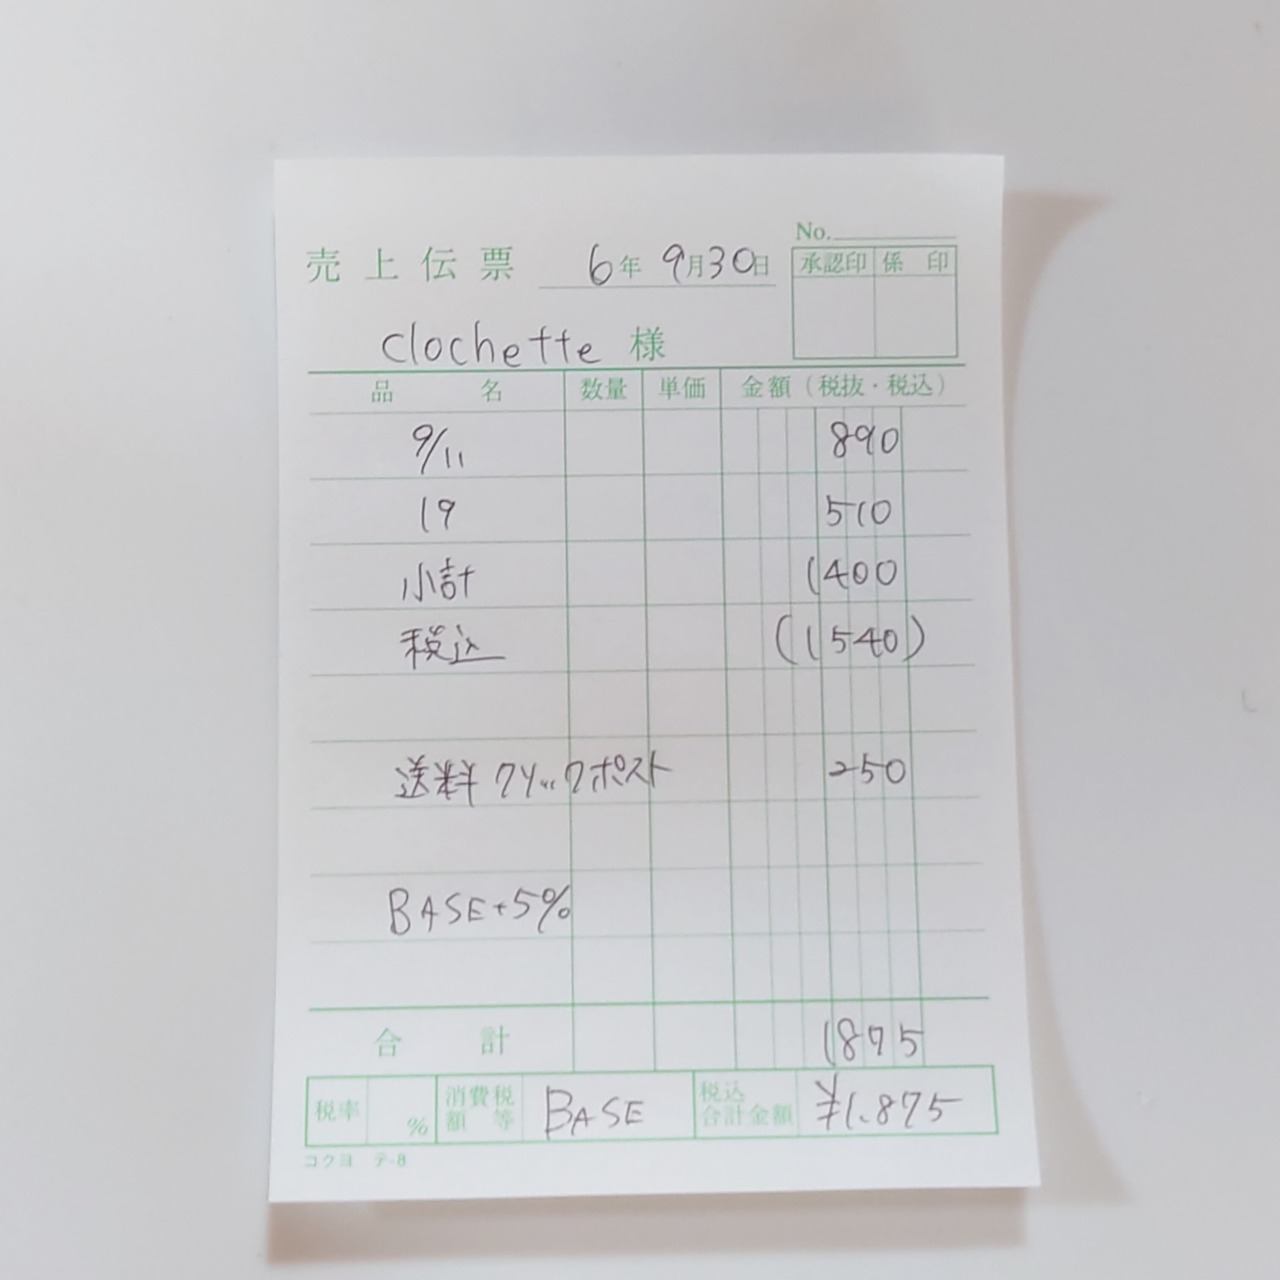 No.
売上伝票 6年 9月30日
承認印 係印
clochette 様
品名 数量 単価 金額(税抜・税込)
9/11 890
19 510
小計 1400
税込 (1540)
送料 クリックポスト 250
BASE+5%
合計 1875
税率 % 消費税額等 BASE 税込合計金額 ¥1.875
コクヨ テ-8